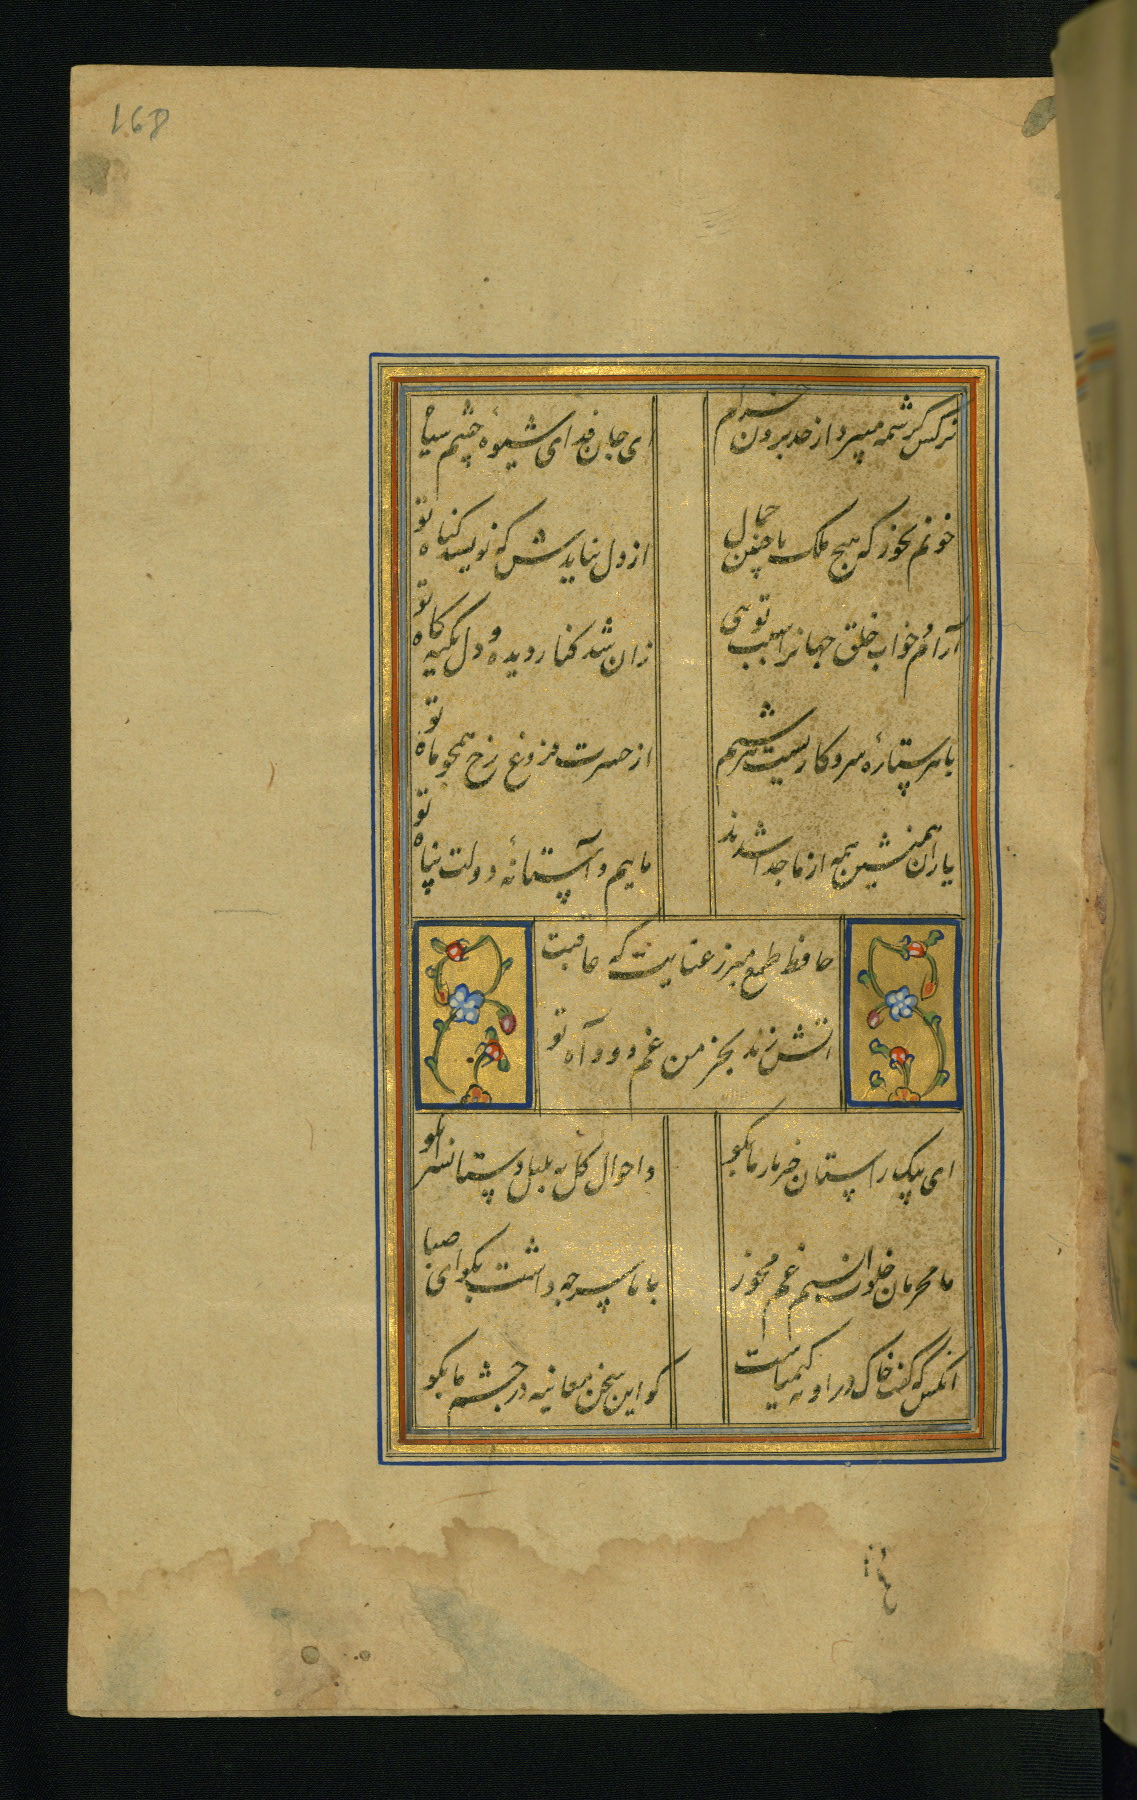 168
نرکس کرشمه میبرد از حد برون خرام
ای جان فدای شیوهٔ چشم سیاه تو
خونم بخور که هیچ ملک با چنین جمال
از دل نیایدش که نویسد کناه تو
آرام و خواب خلق جهانرا سبب تویی
زان شد کنار دیده و دل تکیه کاه تو
با هر ستارهٔ سر و کاریست هر شبم
از حسرت فروغ رخ همچو ماه تو
یاران همنشین همه از ما جدا شدند
ماییم و آستانهٔ دولت پناه تو
حافظ طمع مبر ز عنایت که عاقبت
آتش زند بخرمن غم دود آه تو
ای پیک راستان خبر یار ما بکو
و احوال کل به بلبل دستانسرا بکو
ما محرمان خلوت انسیم غم مخور
با ما سر چه داشت بکو ای صبا
انکس که گفت خاک در او نه کیمیاست
کو این سخن معاینه در چشم ما بکو